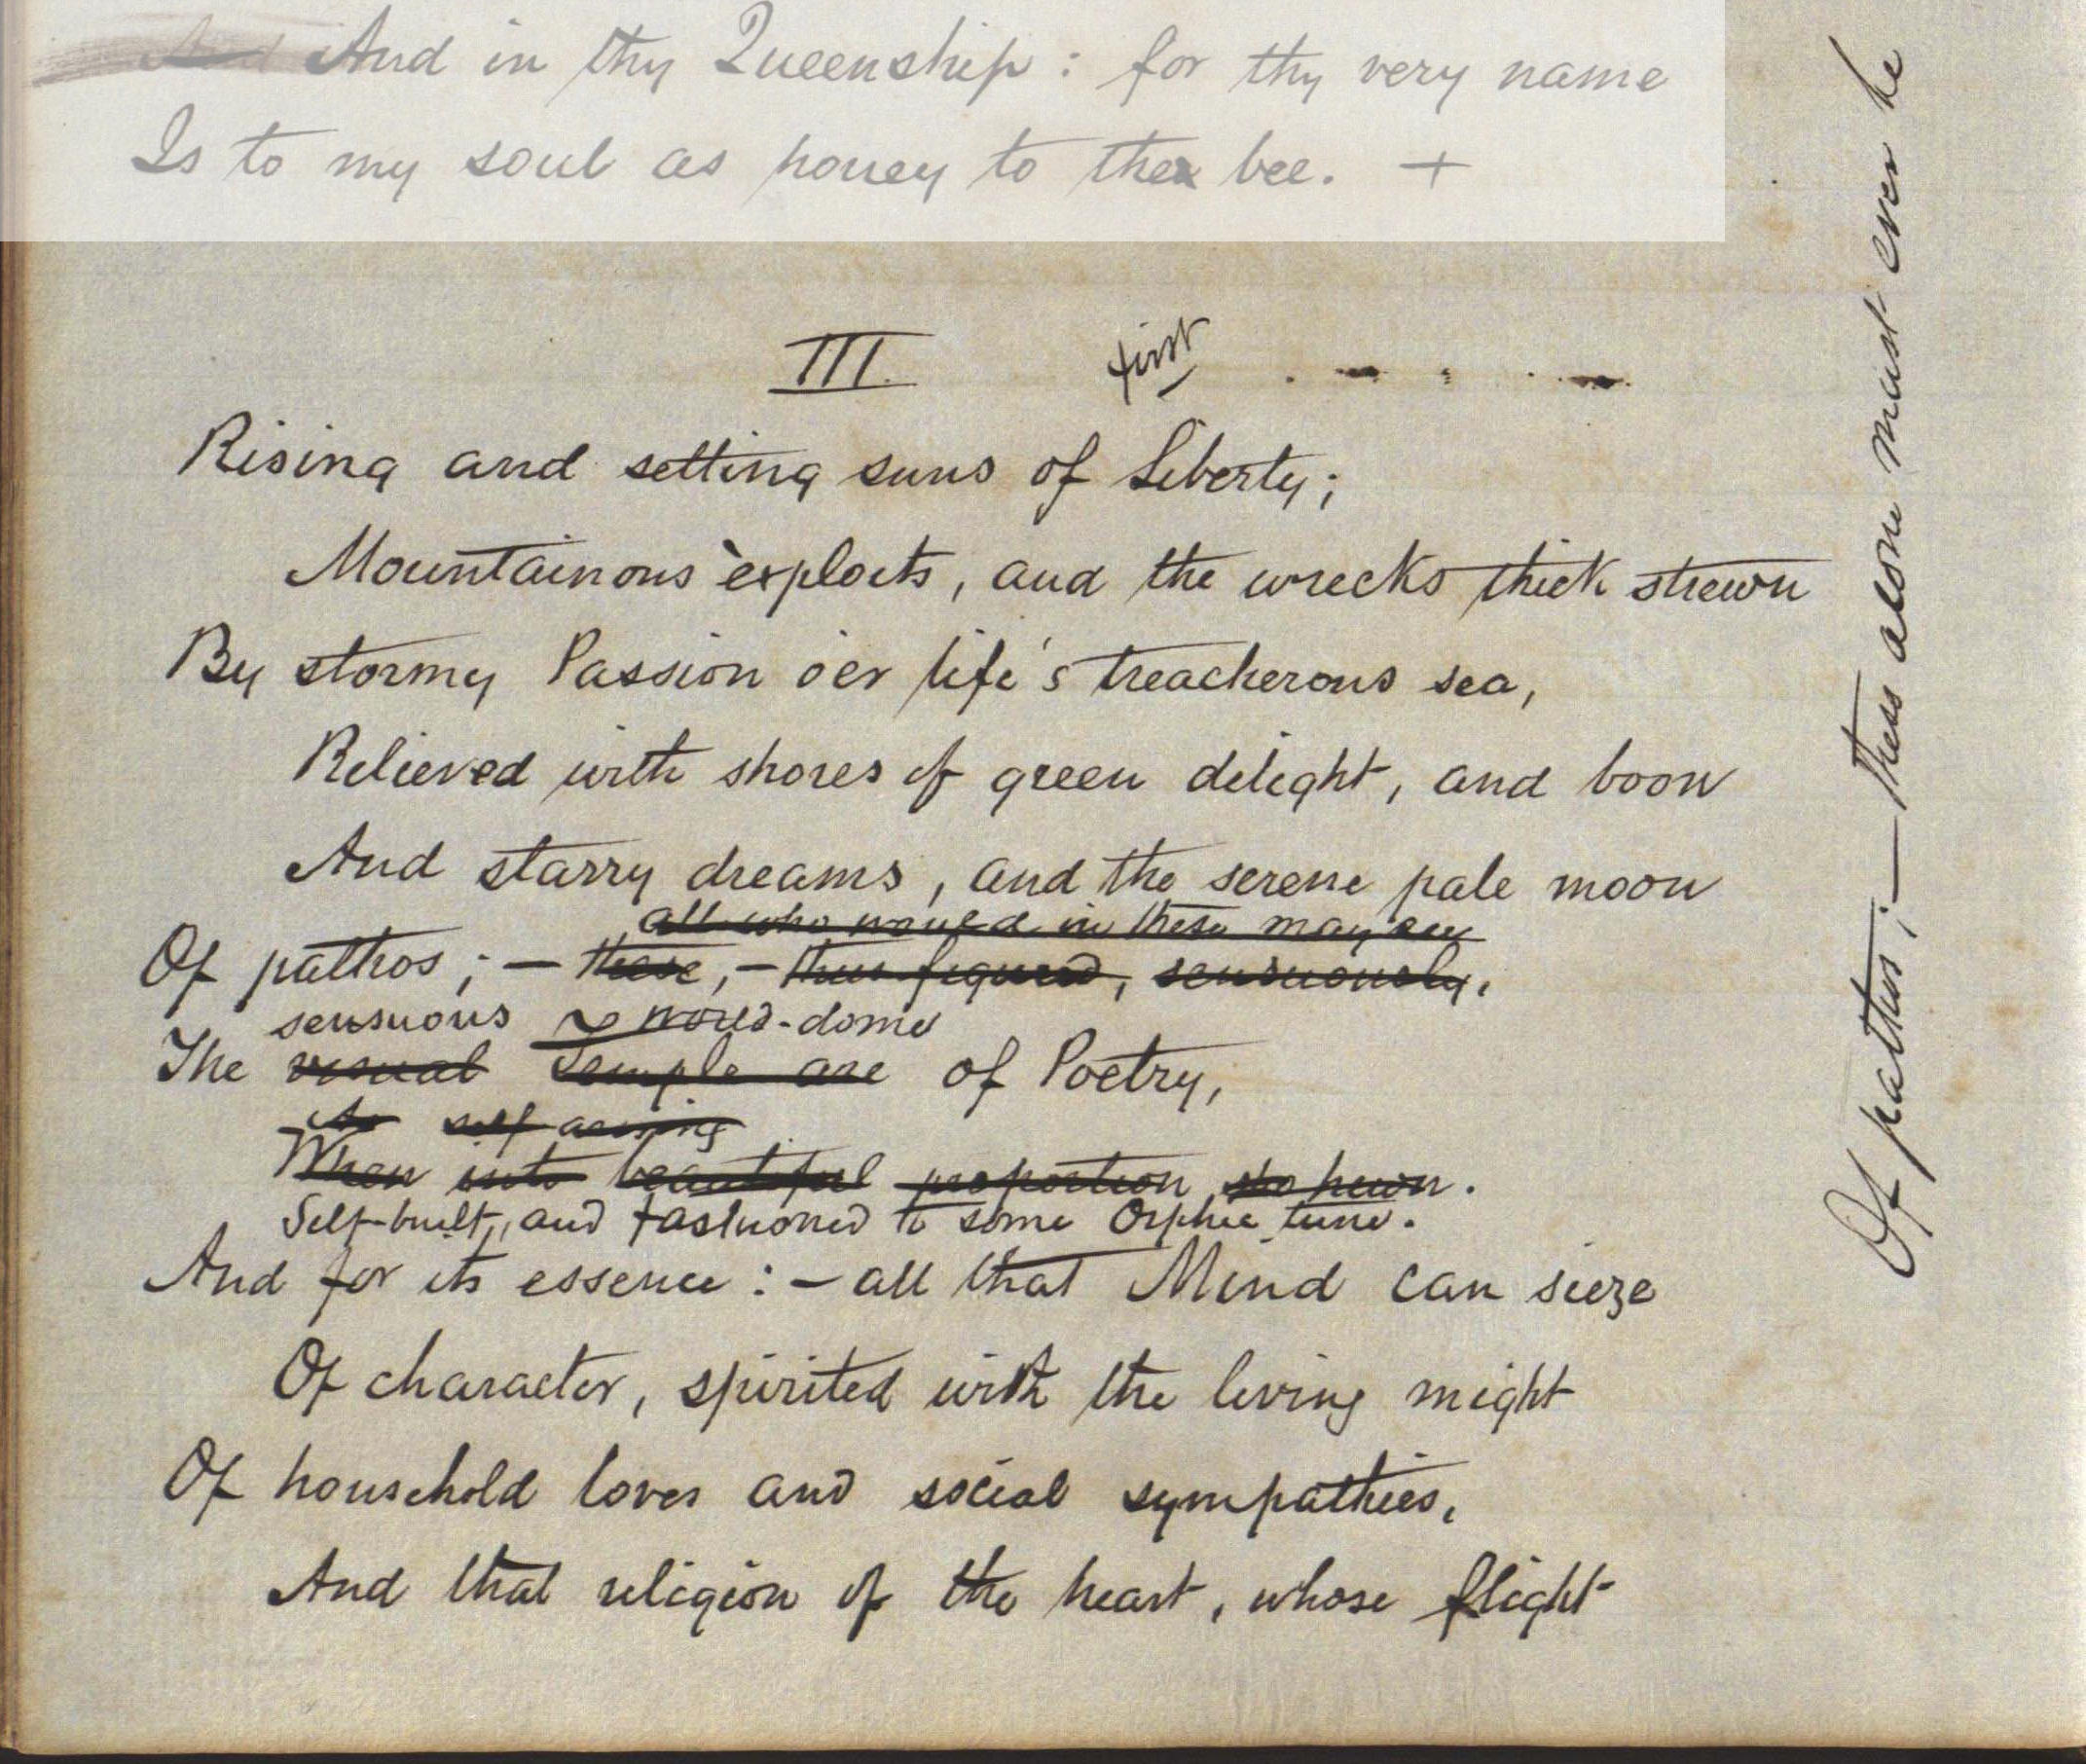 And And in thy Queenship : for thy very name
Is to my soul as honey to the bee. +
III. first
Rising and setting suns of Liberty;
Mountainous exploits, and the wrecks thick strewn
By stormy Passion o'er life's treacherous sea,
Relieved with shores of green delight, and boon
And starry dreams, and the serene pale moon
all who would in these may see
Of pathos; — these, — thus figured, sensuously,
sensuous world-dome
The visual temple are of Poetry,
As self arising
When into beautiful proportion so hewn.
Self-built, and fashioned to some Orphic tune.
And for its essence : — all that Mind can sieze
Of character, spirited with the living might
Of household loves and social sympathies,
And that religion of the heart, whose flight
Of pathos; — these alone must ever be